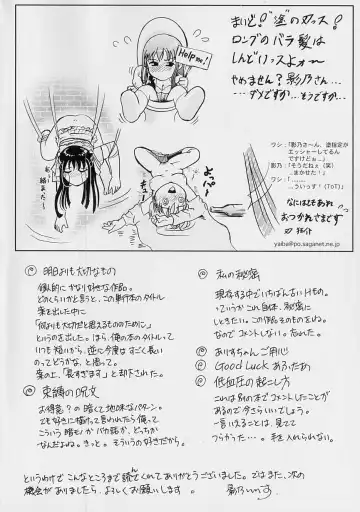 まいど!"塗"のヌッス!
ロングのバラ髪は
しんどいっスよォ〜
やめません?影乃さん…
…ダメですか…そうですか…
Help me!
ワシ:「影乃さーん、塗指定が
エッシャーしてるん
ですけどぉ…」
影乃:「そうだねぇ(笑)
まかせた!」
ワシ:「………
…ういっす!(ToT)」
なにはともあれ
おつかれさまです
yaiba@po.saganet.ne.jp
よっぱー!
◎ 明日よりも大切なもの
個人的にかなり好きな作品。
どのくらいかと言うと、この単行本のタイトル
案を出した中に
「何よりも大切だと思えるもののために」
というのを出した。ほら、俺の本のタイトルって
いつも短いから、逆に今度はすごく長い
のってどうかな、と思って。
案の上、「長すぎます」と却下された。
◎ 束縛の呪文
お得意?の暗くて地味なパターン。
でも好きに描けって言われたら俺って
こういう暗モノかバカ話か、どっちか
なんだよね。きっと。そういうの好きだから。
◎ 私の秘密
現存する中でいちばん古いHもの。
っていうかこれ自体、秘密に
しときたい。この作品そのものをよね。
なのでコメントしない。忘れた。
◎ ありすちゃんご用心
◎ Good Luck あふたぁ
◎ 低血圧の起こし方
これは別の本でコメントしたことが
あるので今さらいいでしょう。
−言えることは、見てて
つらかった…。手を入れられない。
というわけでこんなところまで読んでくれてありがとうございました。ではまた、次の
機会がありましたら、よろしくお願いします。 影乃いりす